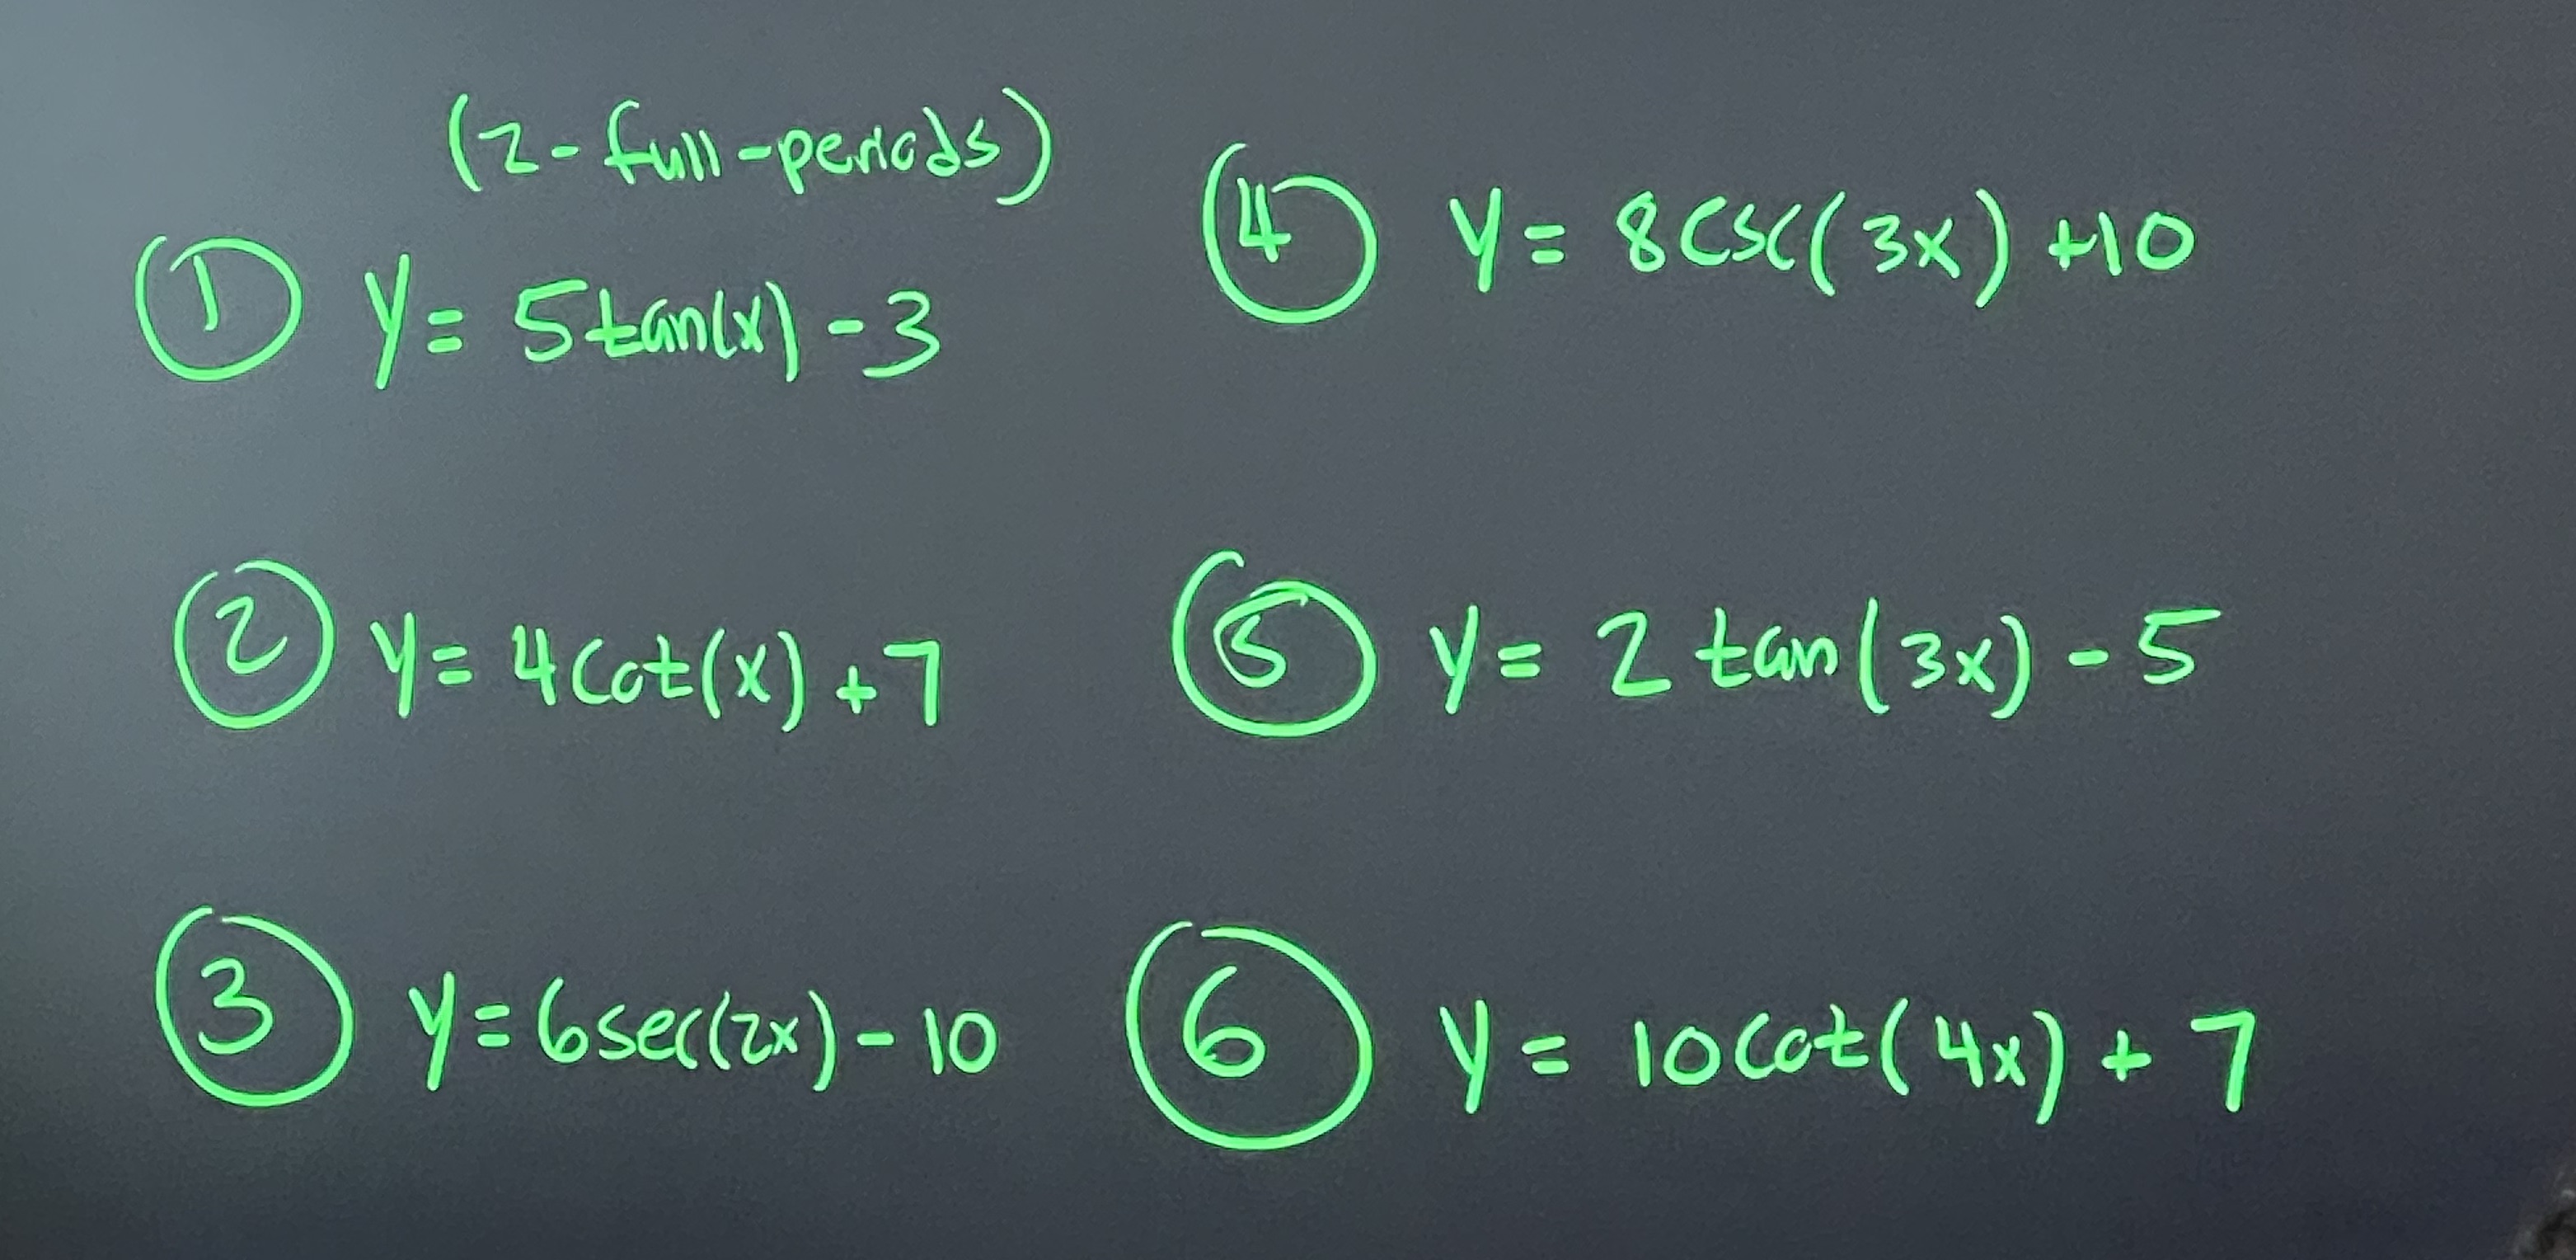 (2-full-periods)
① y = 5tan(x) - 3
② y = 4cot(x) + 7
③ y = 6sec(2x) - 10
④ y = 8csc(3x) + 10
⑤ y = 2 tan(3x) - 5
⑥ y = 10cot(4x) + 7